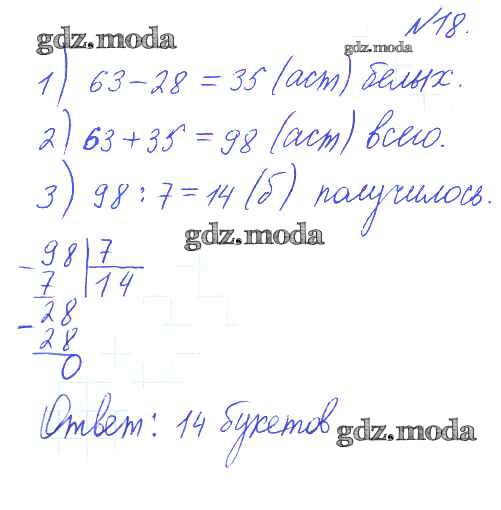 №18.
gdz.moda
gdz.moda
1) 63 - 28 = 35 (аст) белых.
2) 63 + 35 = 98 (аст) всего.
3) 98 : 7 = 14 (б) получилось.
gdz.moda
- 98 | 7
7 | 14
- 28
28
0
Ответ: 14 букетов
gdz.moda